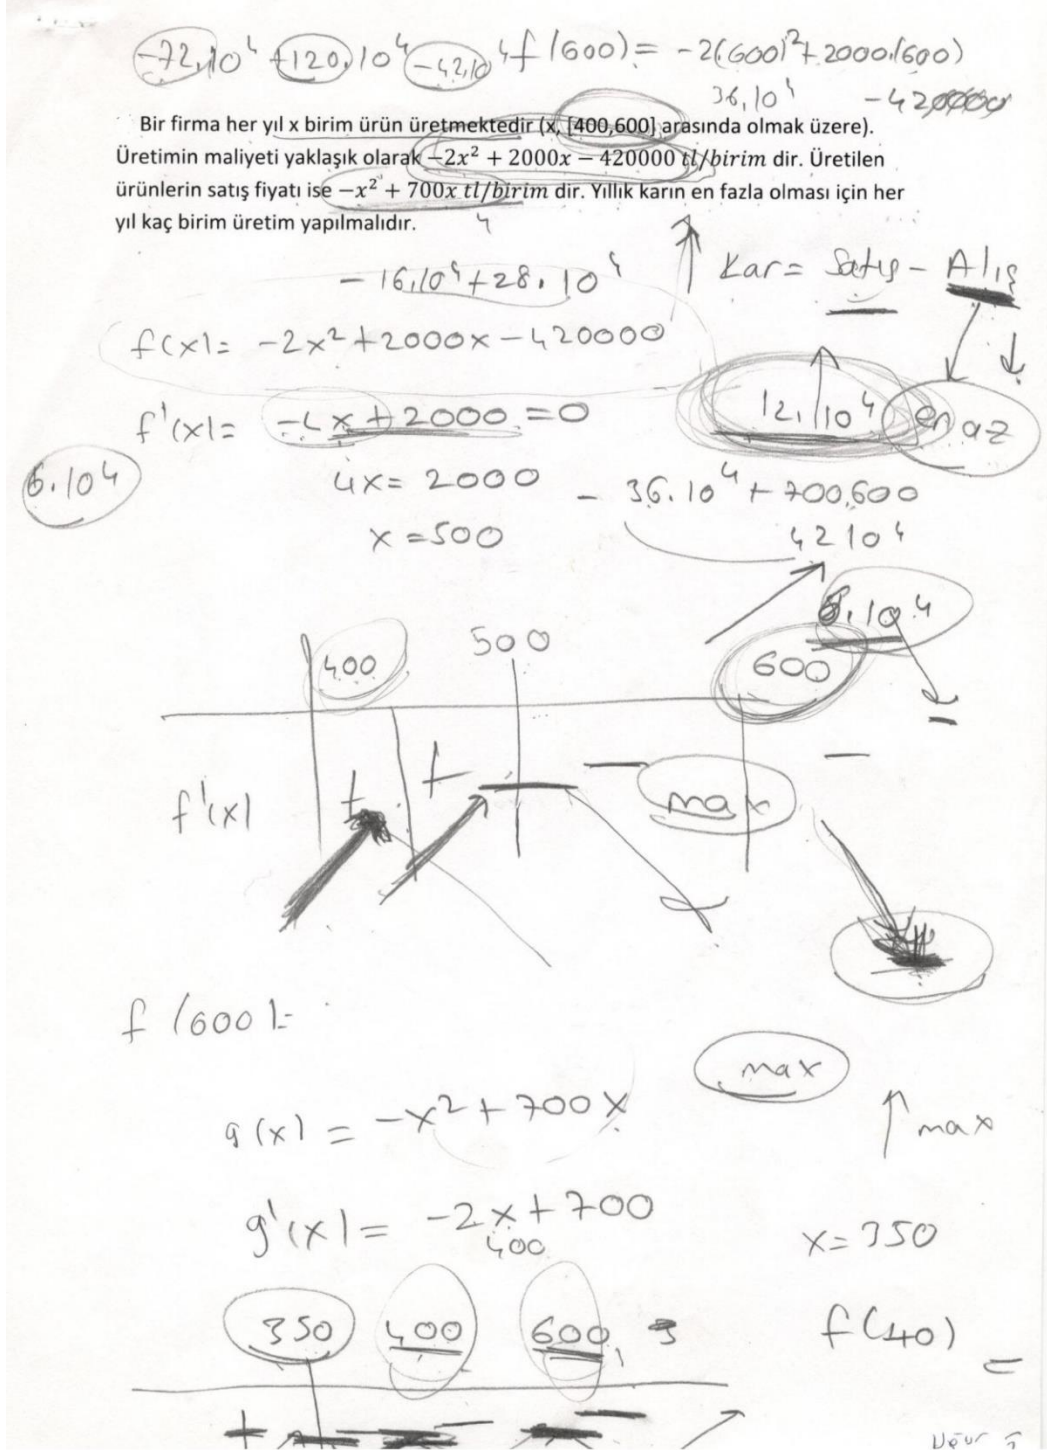 -72.10⁴ +120.10⁴ -42.10⁴ f(600) = -2(600)²+2000.(600)
36.10⁴ -420000
Bir firma her yıl x birim ürün üretmektedir (x, [400,600] arasında olmak üzere).
Üretimin maliyeti yaklaşık olarak −2x² + 2000x − 420000 tl/birim dir. Üretilen
ürünlerin satış fiyatı ise −x² + 700x tl/birim dir. Yıllık karın en fazla olması için her
yıl kaç birim üretim yapılmalıdır.
4
-16.10⁴+28.10⁴
Kar = Satış - Alış
f(x)= -2x²+2000x-420000
12.10⁴ en az
f'(x)= -4x+2000=0
6.10⁴
4x=2000
- 36.10⁴+700.600
x=500
42 10⁴
6.10⁴
400 500 600
f'(x) + + - -
max
f(600)=
max
g(x) = -x²+700x
max
g'(x)= -2x+700
400
x=350
350 400 600
f(40) =
+ - -